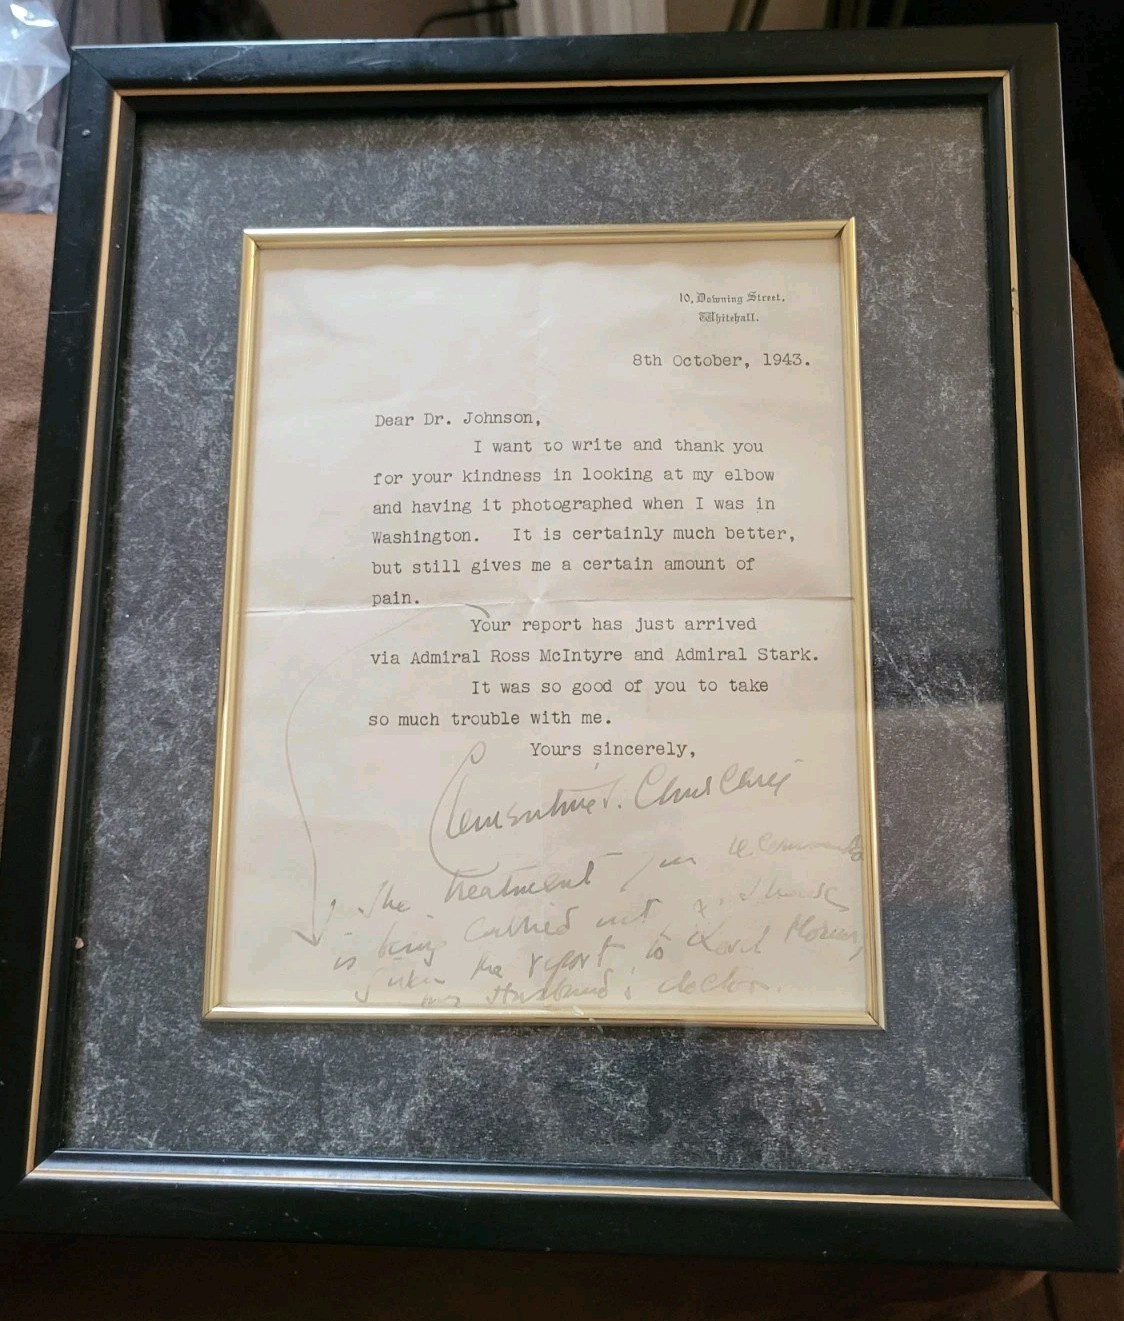 10, Downing Street,
Whitehall.
8th October, 1943.
Dear Dr. Johnson,
I want to write and thank you
for your kindness in looking at my elbow
and having it photographed when I was in
Washington. It is certainly much better,
but still gives me a certain amount of
pain.
Your report has just arrived
via Admiral Ross McIntyre and Admiral Stark.
It was so good of you to take
so much trouble with me.
Yours sincerely,
Clementine S. Churchill
The treatment you recommended
is being carried out & I have
given the report to Lord Moran,
my Husband's doctor.